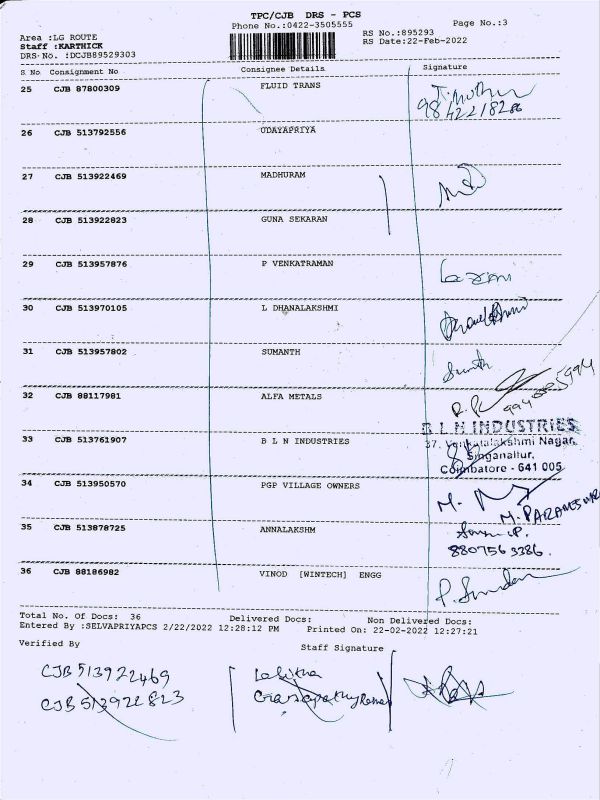 TPC/CJB DRS - PCS
Phone No.:0422-3505555
Page No.:3
Area :LG ROUTE
Staff :KARTHICK
DRS No. :DCJB89529303
RS No.:895293
RS Date:22-Feb-2022
S No Consignment No Consignee Details Signature
25 CJB 87800309 FLUID TRANS
9842218286
26 CJB 513792556 UDAYAPRIYA
27 CJB 513922469 MADHURAM
28 CJB 513922823 GUNA SEKARAN
29 CJB 513957876 P VENKATRAMAN
30 CJB 513970105 L DHANALAKSHMI
31 CJB 513957802 SUMANTH
32 CJB 88117981 ALFA METALS
33 CJB 513761907 B L N INDUSTRIES
B L N INDUSTRIES
37, Venkatalakshmi Nagar,
Singanallur,
Coimbatore - 641 005
34 CJB 513950570 PGP VILLAGE OWNERS
35 CJB 513878725 ANNALAKSHM
8807563386.
36 CJB 88186982 VINOD [WINTECH] ENGG
Total No. Of Docs: 36 Delivered Docs: Non Delivered Docs:
Entered By :SELVAPRIYAPCS 2/22/2022 12:28:12 PM Printed On: 22-02-2022 12:27:21
Verified By Staff Signature
CJB 513922469
CJB 513922823